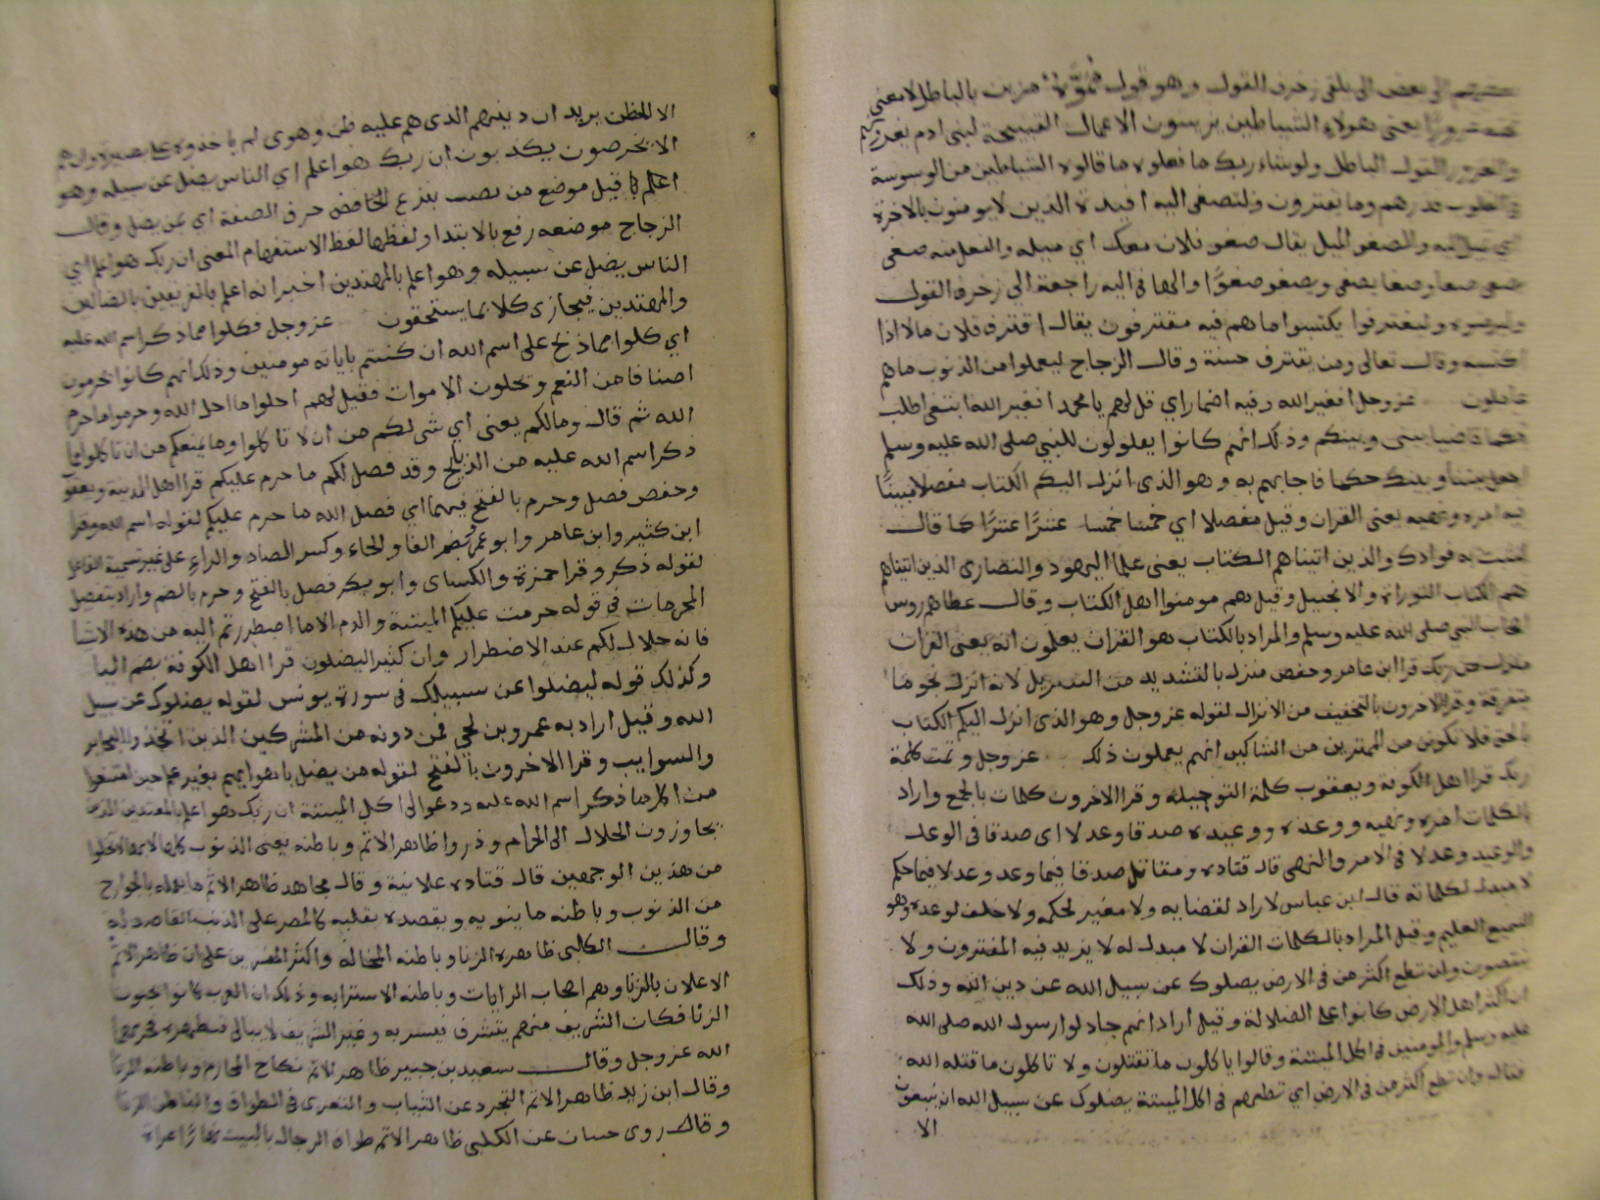 بعضهم الى بعض اي يلقي زخرف القول وهو قول مموه مزين بالباطل لا معنى
تحته غرورا يعني هولاء الشياطين يزينون الاعمال القبيحة لبني ادم يغرونهم
والغرور القول الباطل ولو شاء ربك ما فعلوه ما قالوه الشياطين من الوسوسة
في القلوب فذرهم وما يفترون ولتصغى اليه افيدة الذين لا يومنون بالاخرة
اي تميل اليه والصغو الميل يقال صغو فلان معك اي ميله والفعل منه صغى
يصغى صغا وصغا يصغى ويصغو صغوًّا والها في اليه راجعة الى زخرف القول
وليرضوه وليقترفوا يكتسبوا ما هم فيه مقترفون يقال اقترف فلان مالا اذا
اكتسبه وقال تعالى ومن يقترف حسنة وقال الزجاج ليعملوا من الذنوب ما هم
عاملون عز وجل افغير الله وفيه اضمار اي قل لهم يا محمد افغير الله ابتغي اطلب
حكما قاضيا بيني وبينكم وذلك انهم كانوا يقولون للنبي صلى الله عليه وسلم
اجعل بيننا وبينك حكما فاجابهم به وهو الذي انزل اليكم الكتاب مفصلا مبينًا
فيه امره ونهيه يعني القران وقيل مفصلا اي خمسا خمسا عشرًا عشرًا كما قال
لنثبت به فوادك والذين اتيناهم الكتاب يعني علما اليهود والنصارى الذين اتيناهم
هم الكتاب التوراة والانجيل وقيل هم مومنوا اهل الكتاب وقال عطا هم روس
اصحاب النبي صلى الله عليه وسلم والمراد بالكتاب هو القران يعلمون انه يعني القران
منزل من ربك قرا ابن عامر وحفص منزل بالتشديد من التنزيل لانه انزل نجوما
متفرقة وقرا الاخرون بالتخفيف من الانزال لقوله عز وجل وهو الذي انزل اليكم الكتاب
بالحق فلا تكونن من الممترين من الشاكين انهم يعملون ذلك عز وجل وتمت كلمة
ربك قرا اهل الكوفة ويعقوب كلمة التوحيد وقرا الاخرون كلمات بالجمع واراد
بالكلمات امره ونهيه ووعده ووعيده صدقا وعدلا اى صدقا في الوعد
والوعيد وعدلا في الامر والنهي قال قتاده ومقاتل صدقا فيما وعد وعدلا فيما حكم
لا مبدل لكلماته قال ابن عباس لا راد لقضايه ولا مغير لحكمه ولا خلف لوعده وهو
السميع العليم وقيل المراد بالكلمات القران لا مبدل له لا يزيد فيه المفترون ولا
ينقصون وان تطع اكثر من في الارض يضلوك عن سبيل الله عن دين الله وذلك
ان اكثر اهل الارض كانوا على الضلالة وقيل اراد انهم جادلوا رسول الله صلى الله
عليه وسلم والمومنين في اكل الميتة وقالوا ياكلون ما تقتلون ولا تاكلون ما قتله الله
فقال وان تطع اكثر من في الارض اي تطعهم في اكل الميتة يضلوك عن سبيل الله ان يتبعون
الا
الا الظن يريد ان دينهم الذى هم عليه ظن وهوى لم ياخذوه على بصيرة وان هم
الا يخرصون يكذبون ان ربك هو اعلم اي الناس يضل عن سبيله وهو
اعلم قيل موضع من نصب بنزع الخافض حرف الصفة اي عن يضل وقال
الزجاج موضعه رفع بالابتدا ولفظها لفظ الاستفهام المعنى ان ربك هو اعلم اي
الناس يضل عن سبيله وهو اعلم بالمهتدين اخبر انه اعلم بالفريقين بالضالين
والمهتدين فيجازى كلا بما يستحقون عز وجل فكلوا مما ذكر اسم الله عليه
اي كلوا مما ذبح على اسم الله ان كنتم باياته مومنين وذلك انهم كانوا يحرمون
اصنافا من النعم ويحلون الاموات فقيل لهم احلوا ما احل الله وحرموا ما حرم
الله ثم قال وما لكم يعنى اي شى لكم من ان لا تاكلوا وما يمنعكم من ان تاكلوا مما
ذكر اسم الله عليه من الذبايح وقد فصل لكم ما حرم عليكم قرا اهل المدينة ويعقوب
وحفص فصل وحرم بالفتح فيهما اي فصل الله ما حرم عليكم لقوله اسم الله وقرا
ابن كثير وابن عامر وابو عمر بضم الفا والحاء وكسر الصاد والراء على غير تسمية الفاعل
لقوله ذكر وقرا حمزة والكساى وابو بكر فصل بالفتح وحرم بالضم واراد بتفصيل
المحرمات في قوله حرمت عليكم الميتة والدم الا ما اضطررتم اليه من هذه الاشيا
فانه حلال لكم عند الاضطرار وان كثيرا ليضلون قرا اهل الكوفة بضم اليا
وكذلك قوله ليضلوا عن سبيلك في سورة يونس لقوله يضلوك عن سبيل
الله وقيل اراد به عمرو بن لحي فمن دونه من المشركين الذين اتخذوا البحاير
والسوايب وقرا الاخرون بالفتح لقوله من يضل باهوايهم بغير علم حين امتنعوا
من اكل ما ذكر اسم الله عليه ودعوا الى اكل الميتة ان ربك هو اعلم بالمعتدين الذين
يجاوزون الحلال الى الحرام وذروا ظاهر الاثم وباطنه يعني الذنوب كلها لانها لا تخلوا
من هذين الوجهين قال قتاده علانية وقال مجاهد ظاهر الاثم ما يعمله بالجوارح
من الذنوب وباطنه ما ينويه ويقصده بقلبه كالمصر على الذنب القاصد له
وقال الكلبى ظاهره الزنا وباطنه المخالة واكثر المفسرين على ان ظاهر الاثم
الاعلان بالزنا وهم اصحاب الرايات وباطنه الاستسرابه وذلك ان العرب كانوا يحبون
الزنا فكان الشريف منهم يتشرف فيسر به وغير الشريف لا يبالى فيظهره فحرمهما
الله عز وجل وقال سعيد بن جبير ظاهر الاثم نكاح المحارم وباطنه الزنا
وقال ابن زيد ظاهر الاثم التجرد عن الثياب والتعرى في الطواف والباطن الزنا
وقال روى حسان عن الكلبى ظاهر الاثم طواف الرجال بالبيت نهارًا عراة